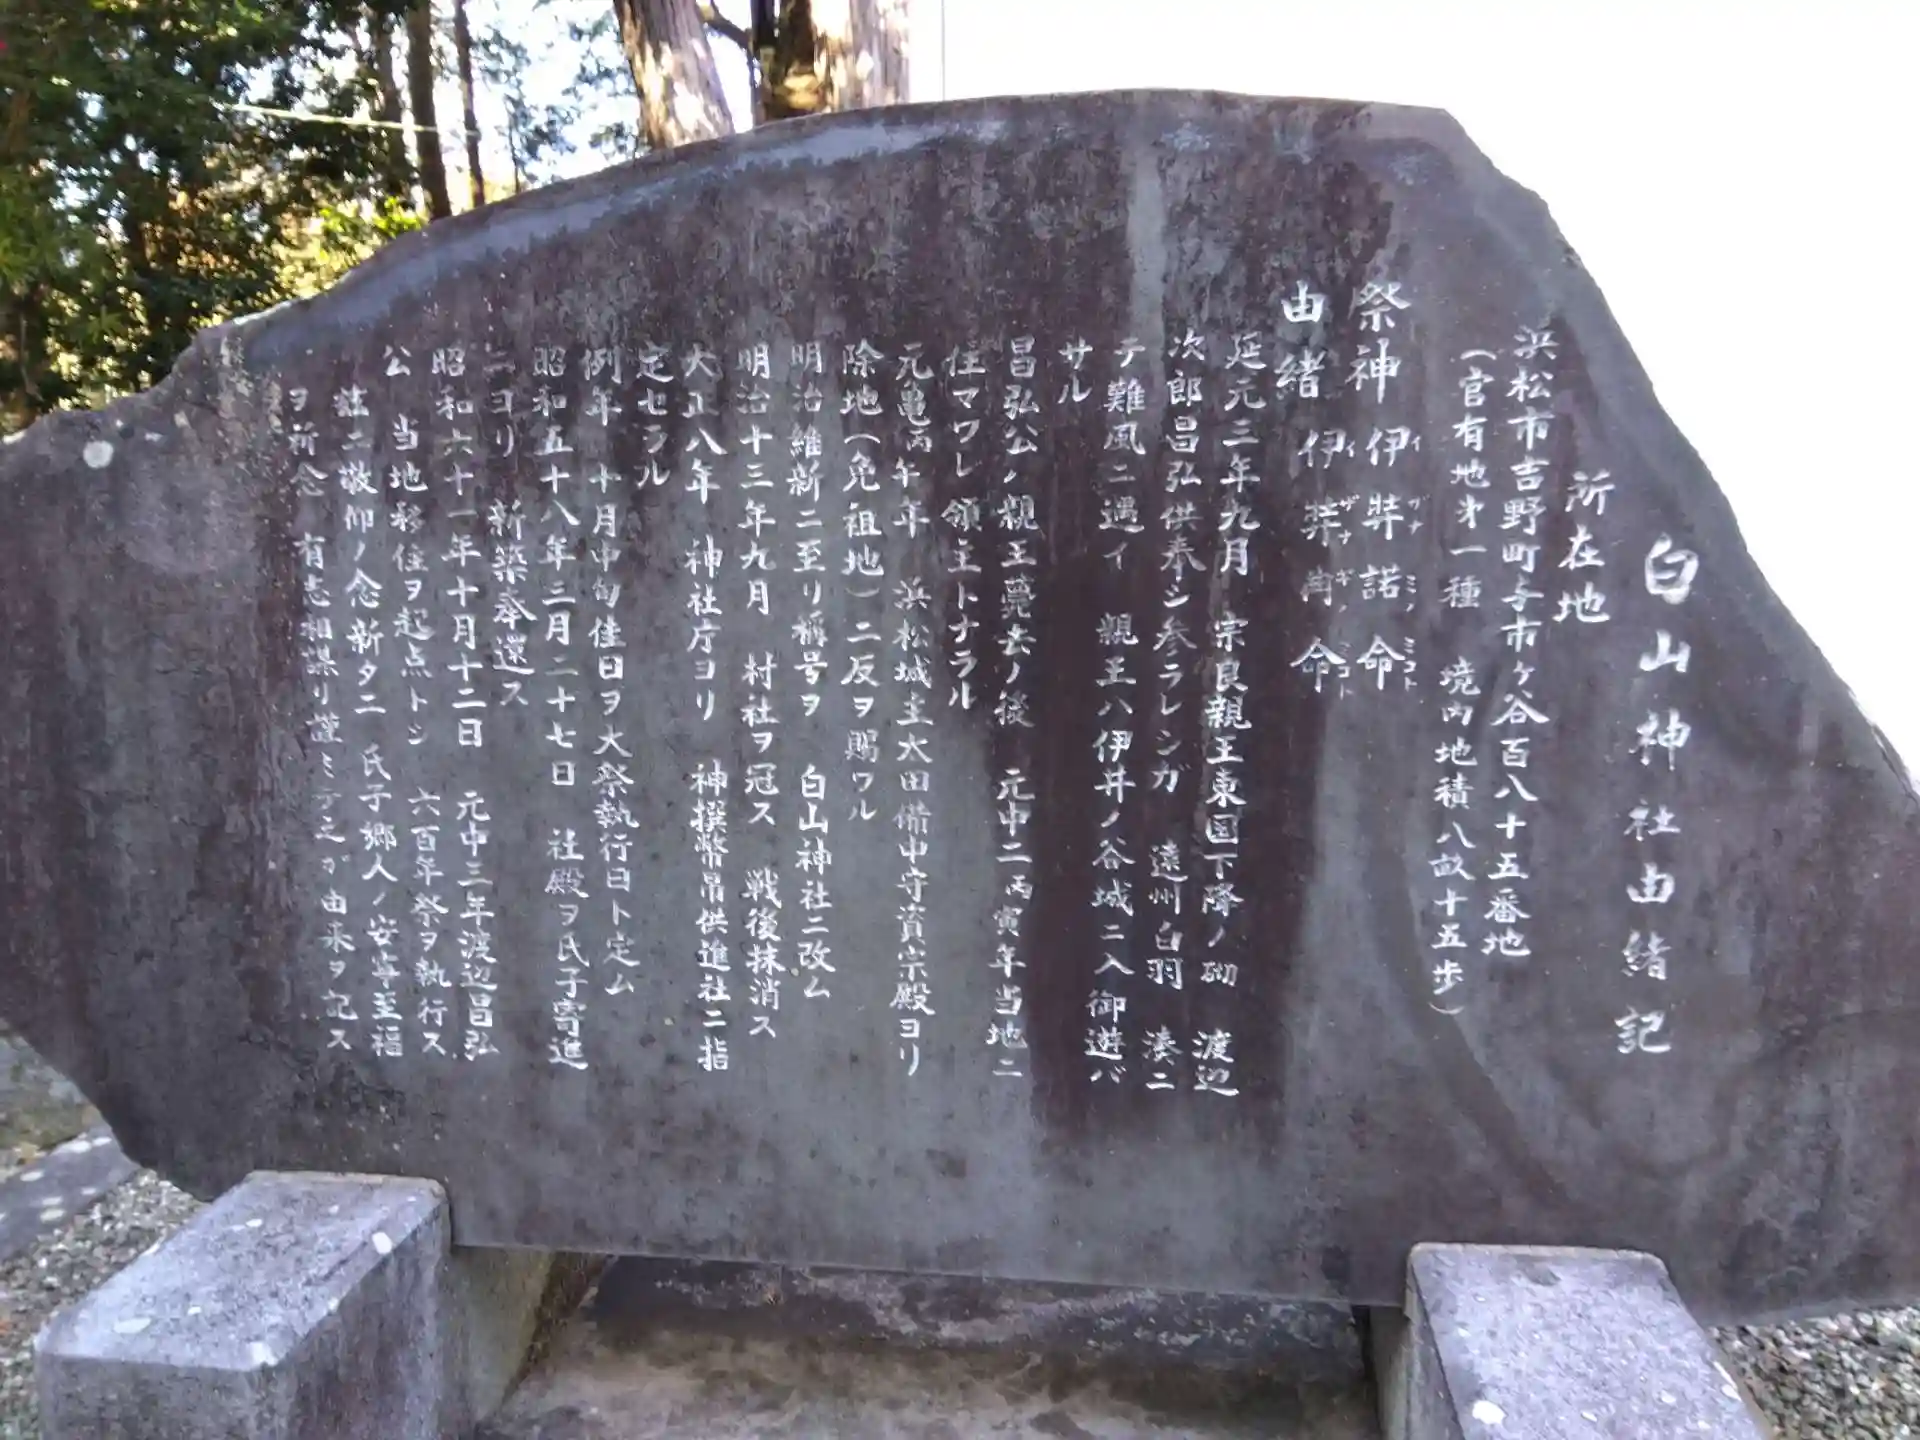 白山神社由緒記
所在地
浜松市吉野町与市ヶ谷百八十五番地
(官有地才一種 境内地積八畝十五歩)
祭神 伊弉諾命
由緒 伊弉冉命
延元三年九月 宗良親王東国下降ノ砌 渡辺
次郎昌弘供奉シ参ラレシガ 遠州白羽 湊ニ
テ難風ニ遇イ 親王ハ伊井ノ谷城ニ入御遊バ
サル
昌弘公ノ親王薨去ノ後 元中二丙寅年当地ニ
住マワレ領主トナラル
元亀丙午年 浜松城主太田備中守資宗殿ヨリ
除地(免祖地)二反ヲ賜ワル
明治維新ニ至リ稱号ヲ 白山神社ニ改ム
明治十三年九月 村社ヲ冠ス 戦後抹消ス
大正八年 神社庁ヨリ 神撰幣帛供進社ニ指
定セラル
例年 十月中旬佳日ヲ大祭執行日ト定ム
昭和五十八年三月二十七日 社殿ヲ氏子寄進
ニヨリ 新築奉還ス
昭和六十一年十月十二日 元中三年渡辺昌弘
公 当地移住ヲ起点トシ 六百年祭ヲ執行ス
茲ニ敬仰ノ念新タニ 氏子郷人ノ安寧至福
ヲ祈念 有志相謀リ謹ミテ之ガ由来ヲ記ス